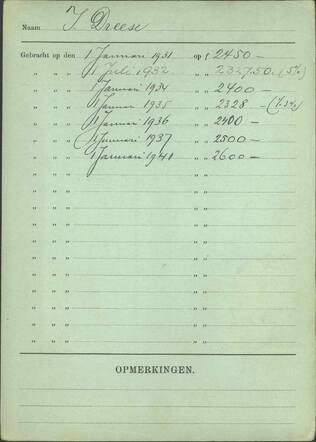 Naam J. Dreese
Gebracht op den 1 Januari 1931 op ƒ 2450 —
„ „ „ 1 Juli 1932 „ „ 2327.50. (5%)
„ „ „ 1 Januari 1934 „ „ 2400 —
„ „ „ 1 Januari 1935 „ „ 2328 —
„ „ „ 1 Januari 1936 „ „ 2400 —
„ „ „ 1 Januari 1937 „ „ 2500 —
„ „ „ 1 Januari 1941 „ „ 2600 —
„ „ „ „ „
„ „ „ „ „
„ „ „ „ „
„ „ „ „ „
„ „ „ „ „
„ „ „ „ „
„ „ „ „ „
„ „ „ „ „
„ „ „ „ „
„ „ „ „ „
„ „ „ „ „
OPMERKINGEN.